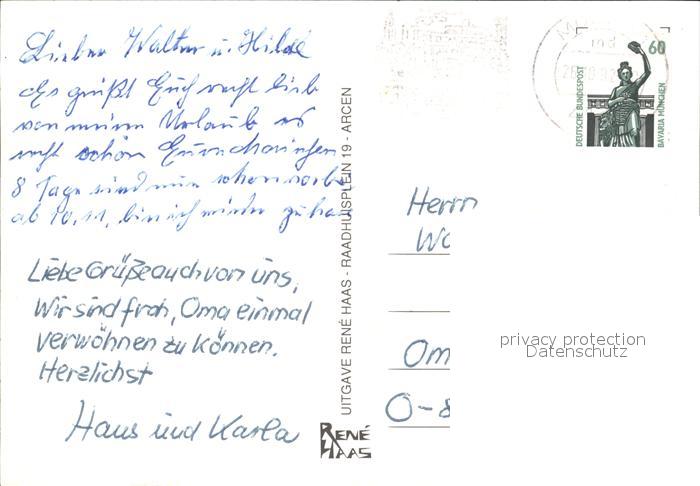 Lieber Walter u. Hilde
Es grüßt Euch recht lieb
von meinem Urlaub es
recht schön
8 Tage sind nun schon vorbei
ab 10.11. bin ich wieder zu haus
Liebe Grüße auch von uns,
Wir sind froh, Oma einmal
verwöhnen zu können.
Herzlichst
Haus und Karla
UITGAVE RENÉ HAAS - RAADHUISPLEIN 19 - ARCEN
RENÉ
HAAS
60
DEUTSCHE BUNDESPOST
BAVARIA MÜNCHEN
Herrn
Wa
Om
O-8
privacy protection
Datenschutz